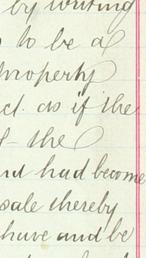 by writing
to be a
Property
ct. as if the
the
nd had become
sale thereby
have and be